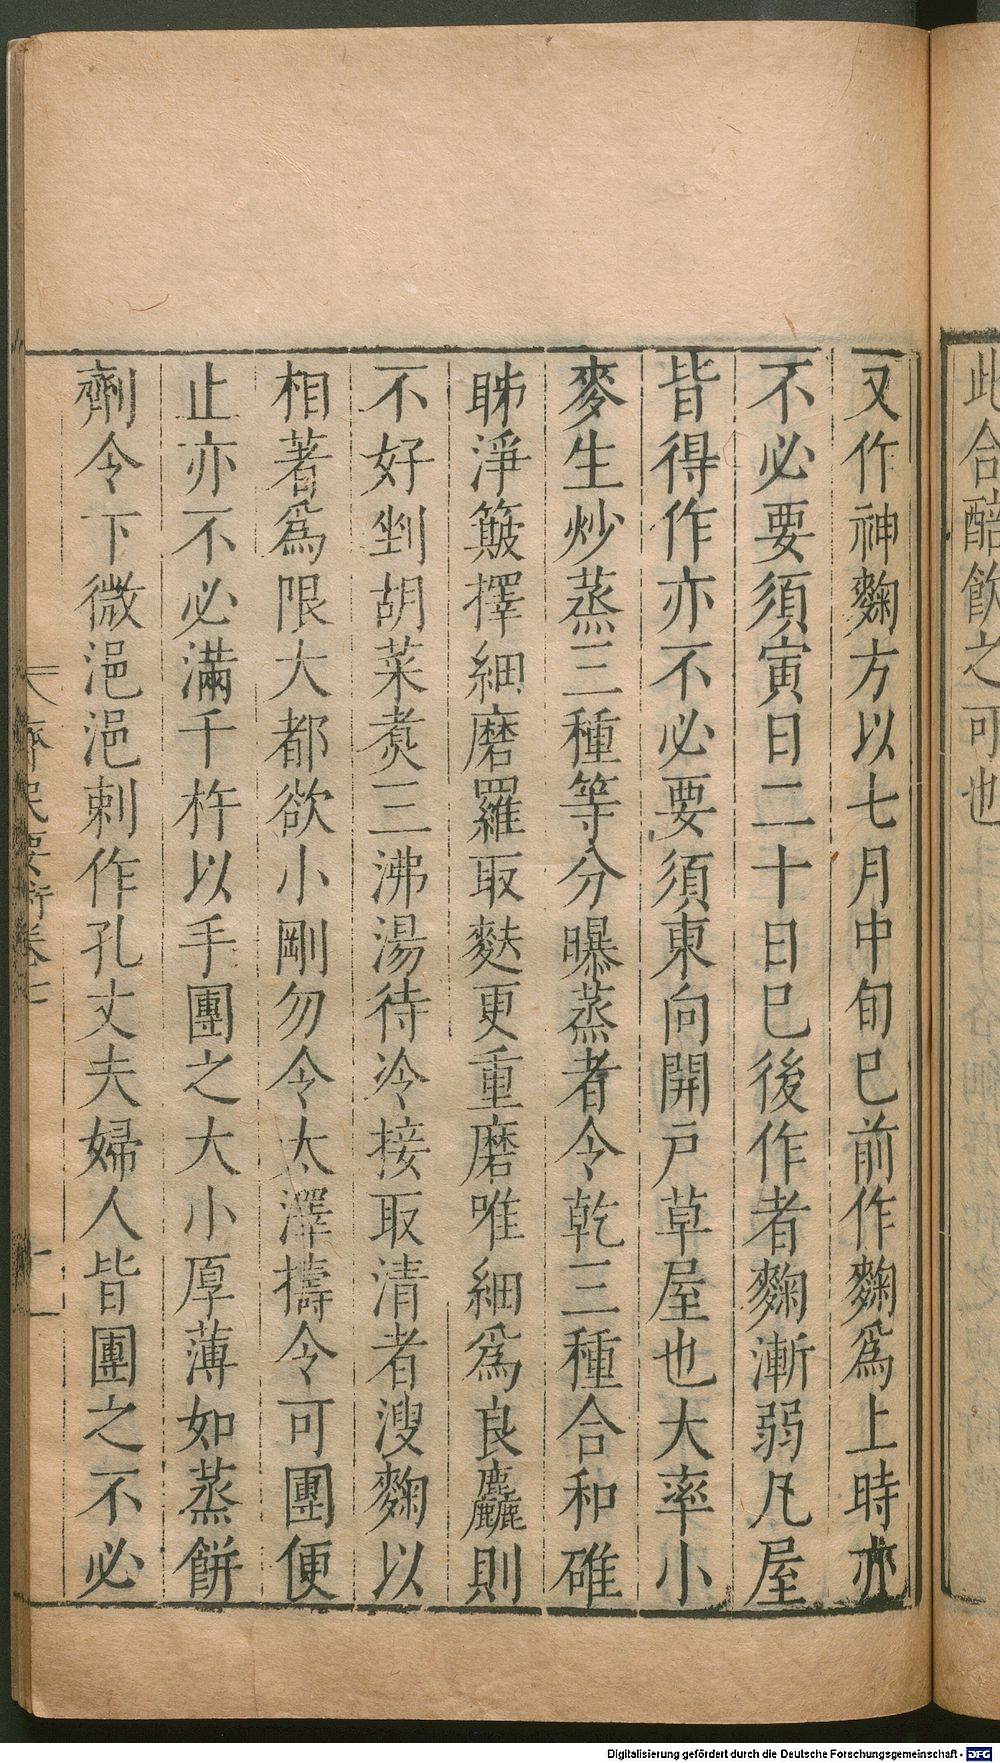 此合醅飲之可也
又作神麴方以七月中旬巳前作麴爲上時亦
不必要須寅日二十日巳後作者麴漸弱凡屋
皆得作亦不必要須東向開戸草屋也大率小
麥生炒蒸三種等分曝蒸者令乾三種合和碓
䏲淨簸擇細磨羅取麩更重磨唯細爲良麤則
不好剉胡菜煑三沸湯待冷接取清者溲麴以
相著爲限大都欲小剛勿令太澤擣令可團便
止亦不必滿千杵以手團之大小厚薄如蒸餅
劑令下微浥浥刺作孔丈夫婦人皆團之不必
齊民要術卷七
Digitalisierung gefördert durch die Deutsche Forschungsgemeinschaft - DFG